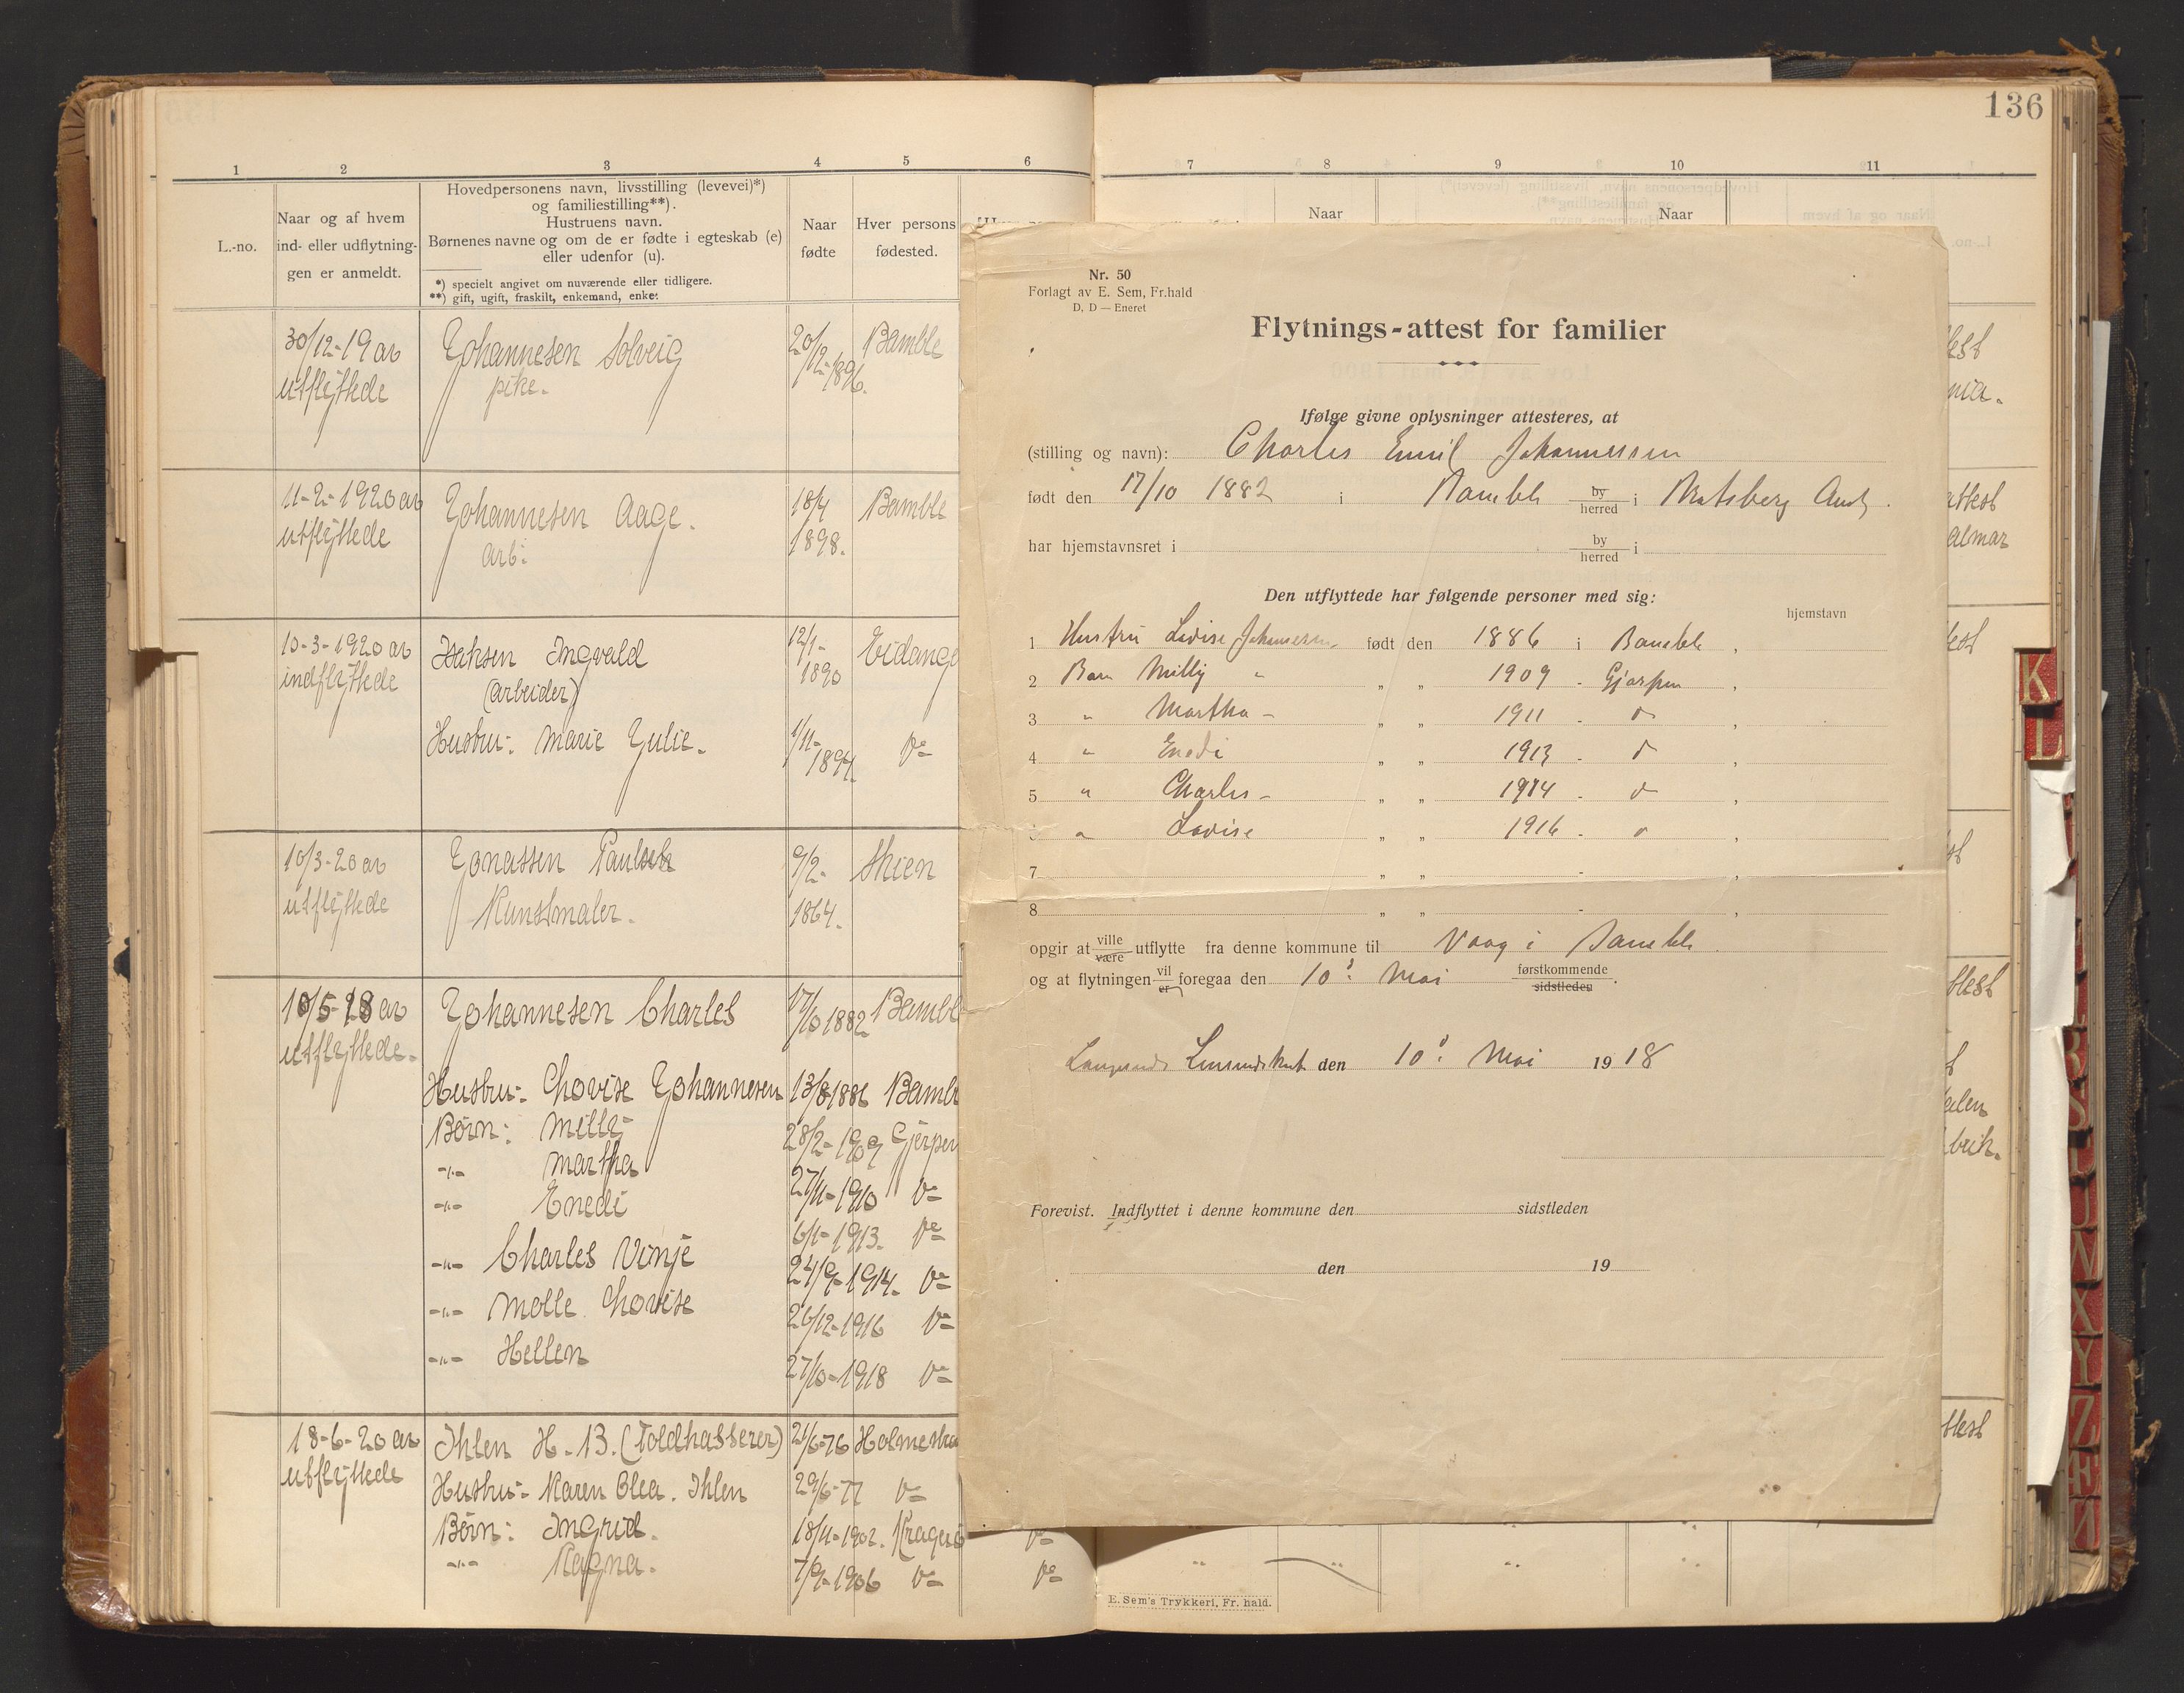 136
1 2 3 4 5 6
L.-no.
Naar og af hvem
ind- eller udflytnin-
gen er anmeldt.
Hovedpersonens navn, livsstilling (levevei)*)
og familiestilling**).
Hustruens navn.
Børnenes navne og om de er fødte i egteskab (e)
eller udenfor (u).
*) specielt angivet om nuværende eller tidligere.
**) gift, ugift, fraskilt, enkemand, enke.
Naar
fødte
Hver persons
fødested.
30/12-19 av Johannesen Solveig 20/12-1896. Bamble
utflyttede pike.
11-2-1920 av Johannesen Aage. 18/4 Bamble
utflyttede arb: 1898.
10-3-1920 av Isaksen Ingvald 12/1- Eidange
indflyttede (arbeider) 1890
Hustru: Marie Julie. 1/11-1894 Do
10/3-20 av Jonassen Paulsen 9/2- Skien
utflyttede Kunstmaler. 1864.
10/5-18 av Johannesen Charles 17/10 1882 Bambl
utflyttede.
Hustru: Lovise Johannesen 13/8-1886 Bambl
Børn: Milli 28/2-1909 Gjerpen
-"- Martha 27/11-1910 Do
-"- Enedi 6/1-1913. Do
-"- Charles Vinje 24/9-1914. Do
-"- Molle Lovise 26/12-1916 Do
-"- Hellen 27/10-1918 Do
18-6-20 av Ihlen H. B. (Toldkasserer) 21/6-76 Holmestra
utflyttede Hustru: Karen Olea. Ihlen 29/6-77 Do
Børn: Ingrid. 18/11-1902. Kragerø Do
-"- Ragna. 7/9-1906 Do Do
7 8 9 10 11
Naar Naar
Nr. 50
Forlagt av E. Sem, Fr.hald
D, D — Eneret
Flytnings-attest for familier
Ifølge givne oplysninger attesteres, at
(stilling og navn): Charles Emil Johannessen
født den 17/10 1882 i Bamble by/herred i Bratsberg Amt.
har hjemstavnsret i by/herred i
Den utflyttede har følgende personer med sig:
hjemstavn
1 Hustru Lovise Johannesen født den 1886 i Bamble ,
2 Barn Milly " " " 1909 - Gjerpen ,
3 " Martha - " " 1911 - do ,
4 " Enedi " " 1913 - do ,
5 " Charles - " " 1914 - do ,
" Lovise " " 1916 - do ,
7 " " - ,
8 " " - ,
opgir at ville/være utflytte fra denne kommune til Vaag i Bamble.
og at flytningen vil/er foregaa den 10de Mai førstkommende/sidstleden.
den 10de Mai 1918
Forevist. Indflyttet i denne kommune den sidstleden
den 19
E. Sem's Trykkeri, Fr. hald.
K
L